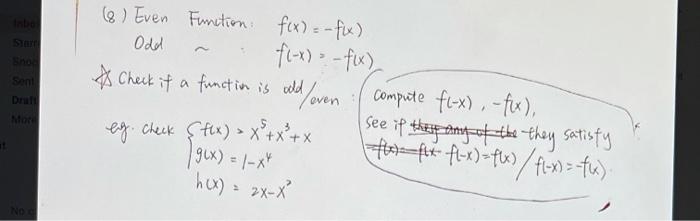 (8) Even Function: f(x) = -f(x)
Odd ~ : f(-x) = -f(x)
☆ Check if a function is odd/even :
compute f(-x), -f(x),
see if they any of the they satisfy
=f(x)=-f(x) f(-x)=f(x) / f(-x)=-f(x).
eg. check { f(x) = x⁵+x³+x
g(x) = 1-x⁴
h(x) = 2x-x²
Inbo
Starr
Snoo
Sent
Draft
More